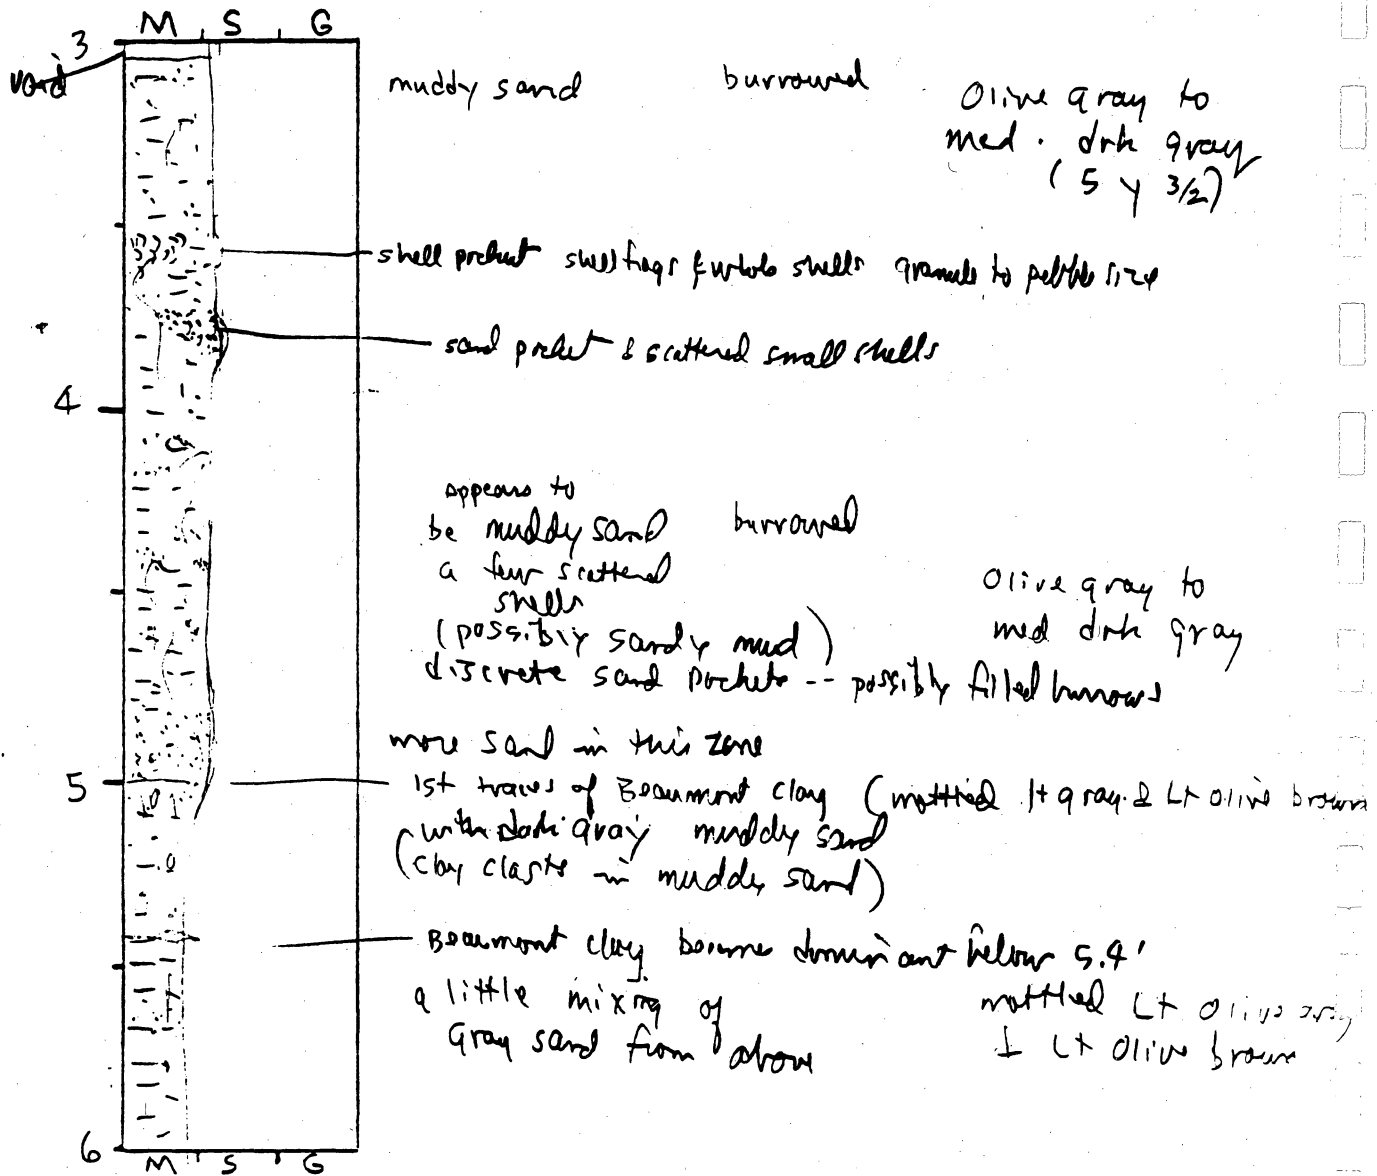 M S G
3
void
muddy sand burrowed
Olive gray to
med. drk gray
(5 Y 3/2)
shell pocket shell frags & whole shells granule to pebble size
sand pocket & scattered small shells
4
appears to
be muddy sand burrowed
a few scattered
shells
(possibly sandy mud)
Olive gray to
med drk gray
discrete sand pockets -- possibly filled burrows
more sand in this zone
5
1st traces of Beaumont clay (mottled lt gray & Lt olive brown
with dark gray muddy sand
(clay clasts in muddy sand)
Beaumont clay become dominant below 5.4'
a little mixing of
gray sand from above
mottled Lt Olive gray
& Lt Olive brown
6
M S G